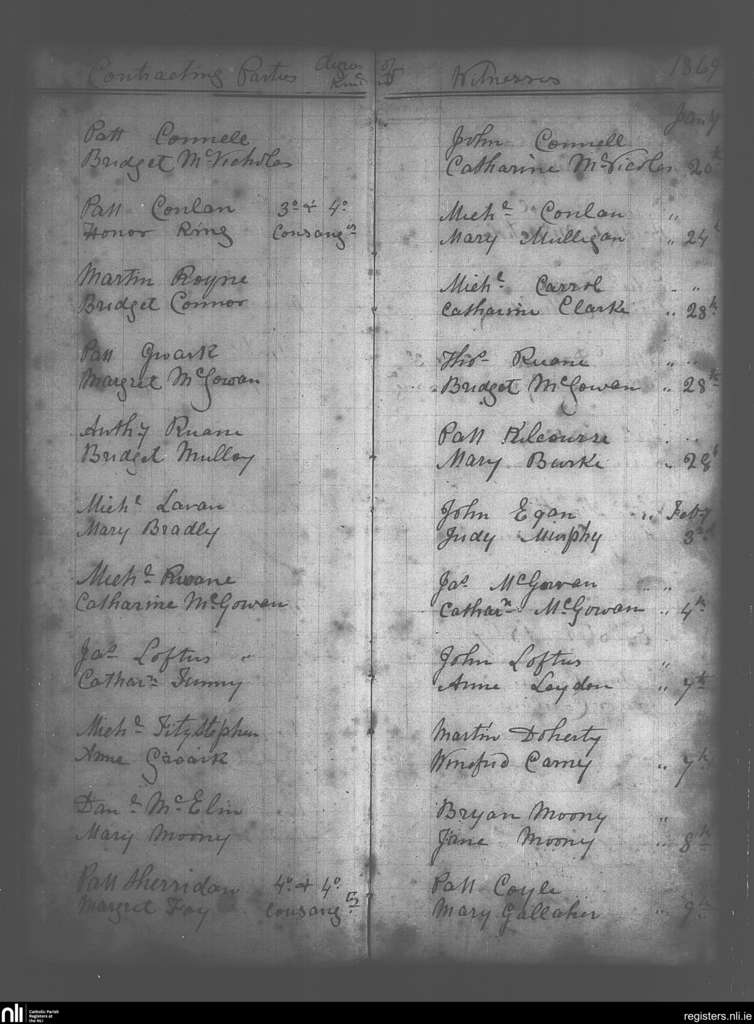 Contracting Parties Degree of Kind Witnesses 1869
Jany
Patt Connell John Connell
Bridget McNicholas Catharine McNicolas 20th
Patt Conlan 3o & 4o Michl Conlan "
Honor King Consangs Mary Mulligan " 24th
Martin Royne Michl Carrol " "
Bridget Connor Catharine Clarke " 28th
Patt Thos Ruane " "
Margret McGowan Bridget McGowan " 28th
Anthy Ruane Patt Kilcourse " "
Bridget Mulloy Mary Burke " 28th
Michl Lavan John Egan " Feby
Mary Bradly Judy Murphy 3d
Michl Ruane Jas McGowan " "
Catharine McGowan Catharn McGowan " 4th
Jas Loftus " John Loftus "
Catharn Anne Leydon " 7th
Michl Fitzstephen Martin Doherty
Anne Winefrid Carney " 7th
Danl McElin Bryan Moony "
Mary Moony Jane Moony " 8th
Patt Sherridan 4o & 4o Patt Coyle
Margret Foy Consang Mary Gallaher " 9th
nli
Catholic Parish
Registers at
the NLI
registers.nli.ie